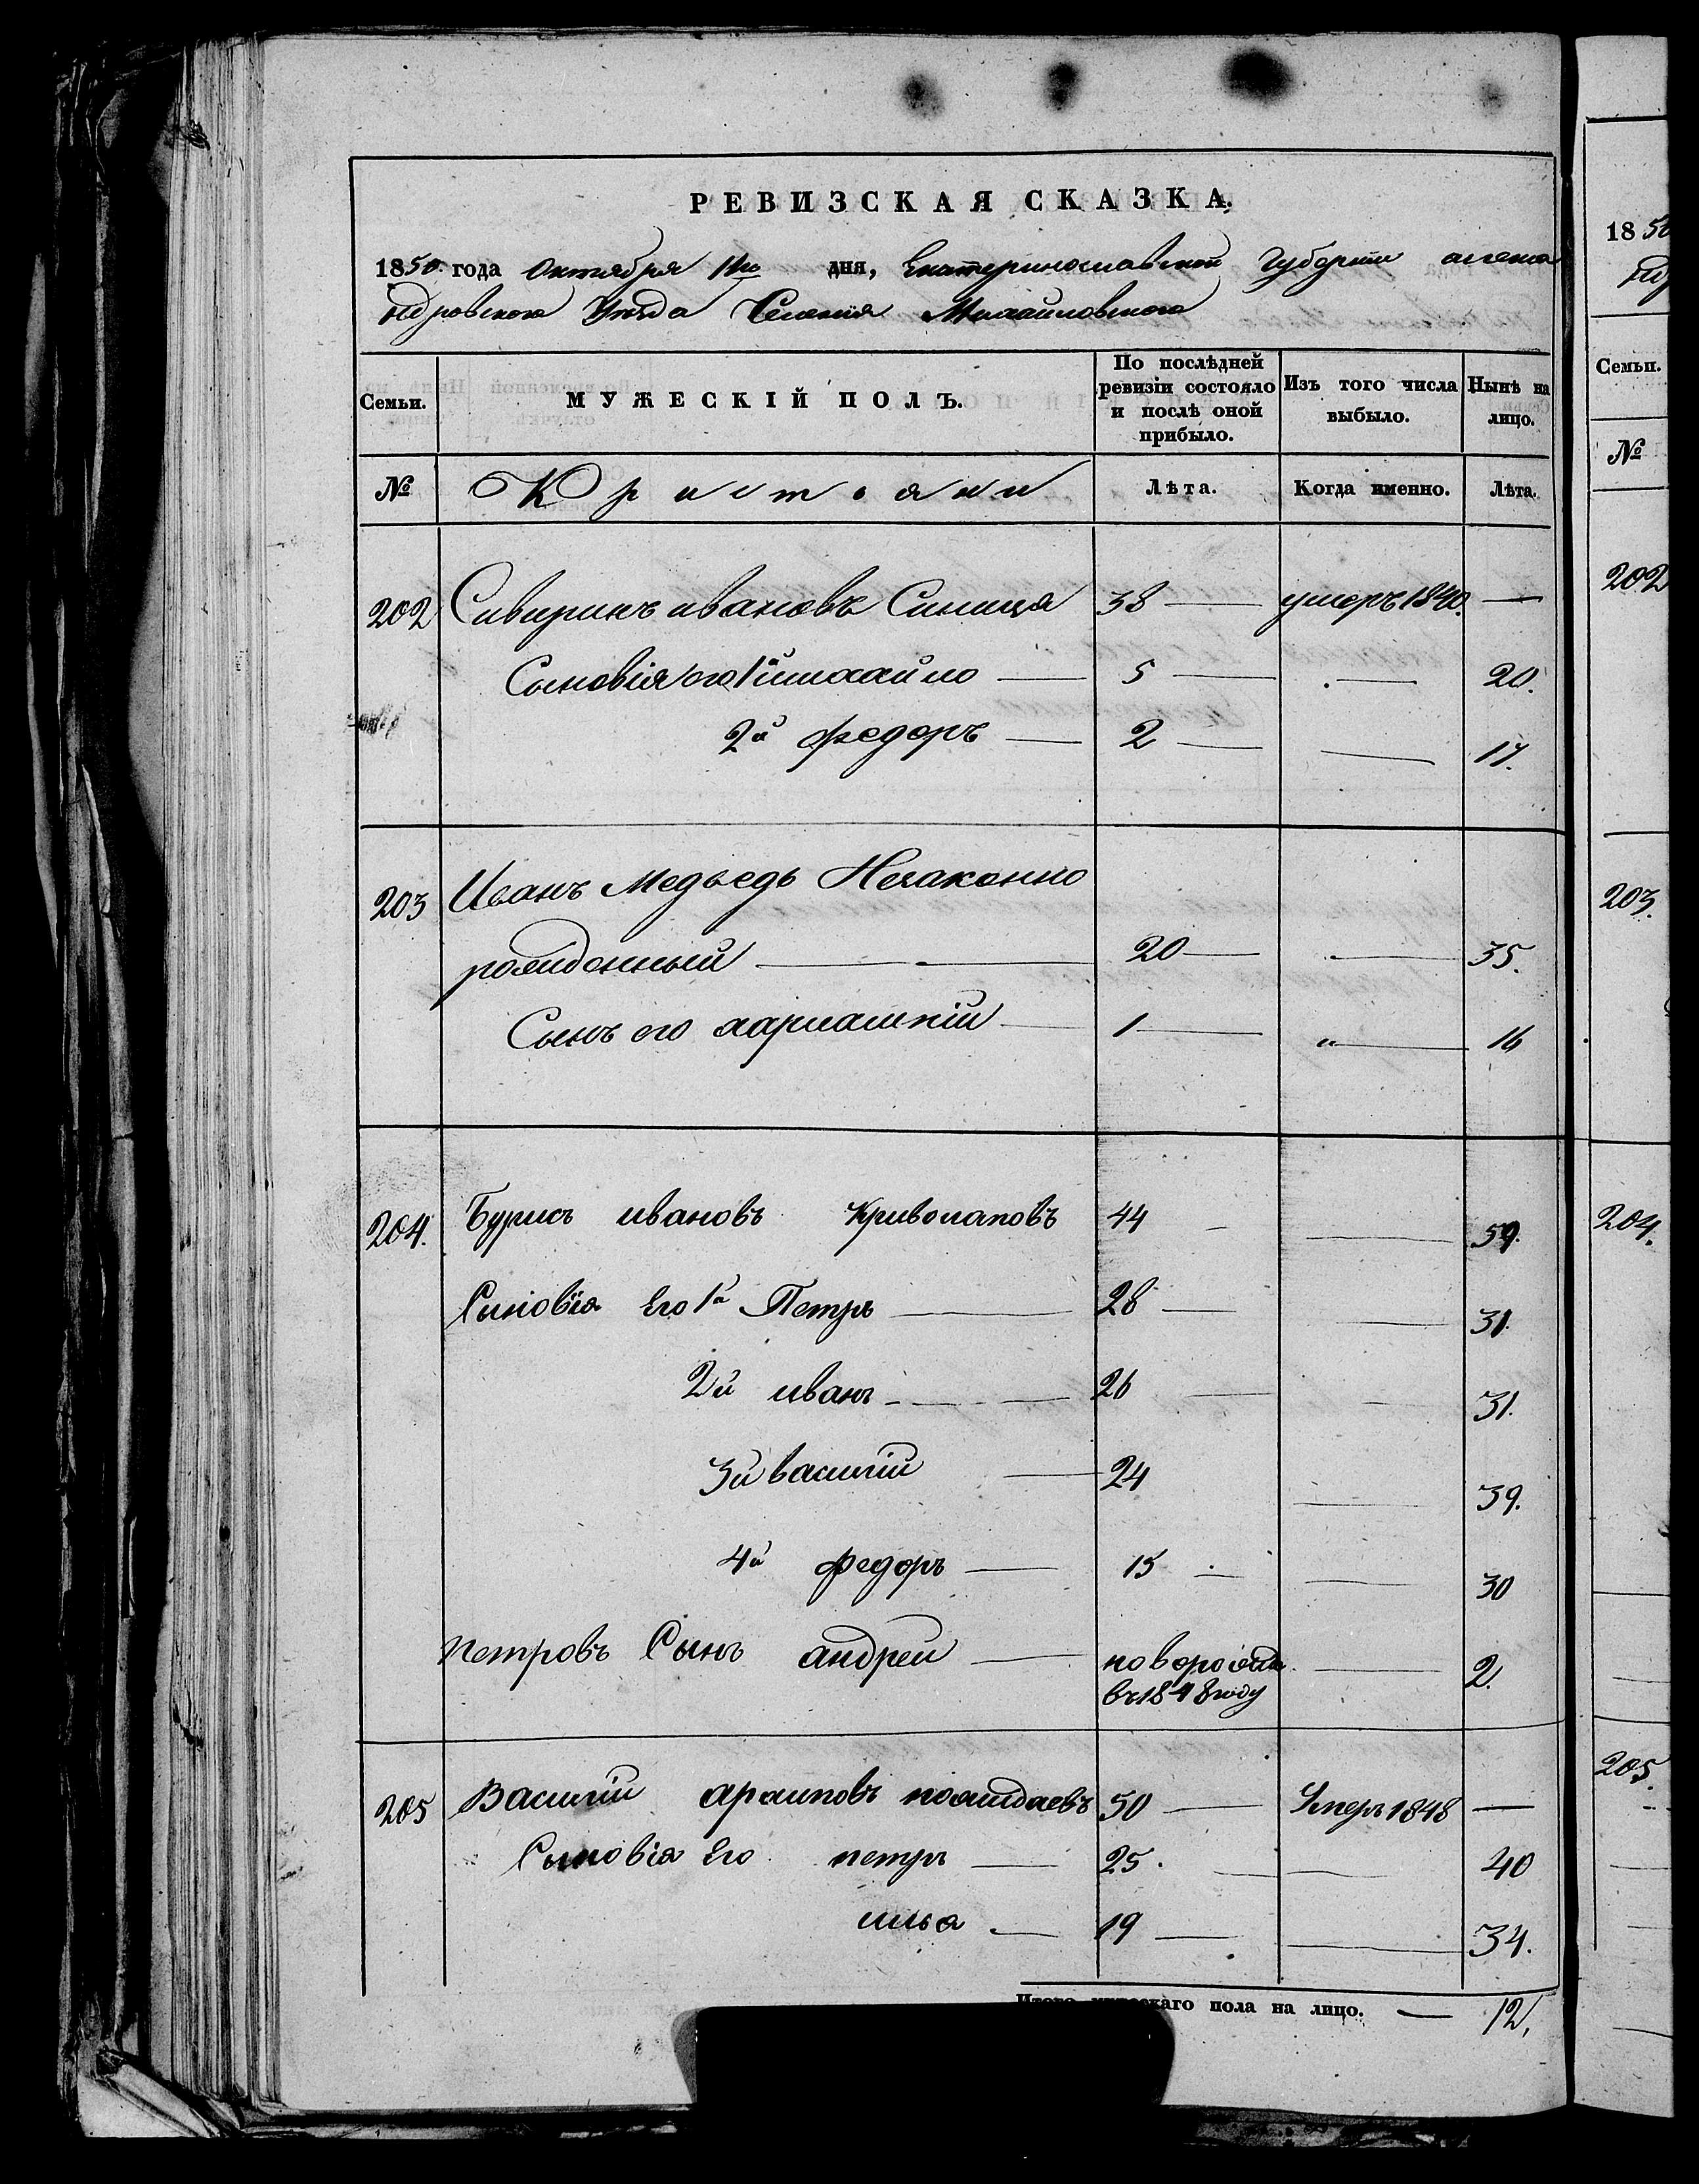 РЕВИЗСКАЯ СКАЗКА.
1850. года Октября 1го дня, Екатеринославской Губерніи алекса
ндровского Уезда Селенія Михайловского
Семьи. МУЖЕСКІЙ ПОЛЪ. По послѣдней ревизіи состояло и послѣ оной прибыло. Изъ того числа выбыло. Нынѣ на лицо.
№ Кристіяни Лѣта. Когда именно. Лѣта.
202 Сивиринъ ивановъ Синиця 38 — умеръ 1840. —
Сыновія его 1й михайло — 5 — — 20.
2й федоръ — 2 — — 17.
203 Иванъ Медведь Незаконно
рожденный — 20 — — 35.
Сынъ его — 1 — " — 16
204. Бурисъ ивановъ Криволаповъ 44 — — 59.
Сыновія Его 1й Петръ — 28 — — 31.
2й иванъ — 26 — — 31.
3й василій — 24 — 39.
4й федоръ — 15 — — 30
Петровъ Сынъ андреи — новорожде — 2.
въ 1848 году
205 Василіи 50 — Умеръ 1848 —
Сыновія Его петръ — 25. — — 40
илья — 19 — — 34.
Итого мужескаго пола на лицо. — 12.
18 50
ндр
Семьи.
№
202
203.
204.
205.